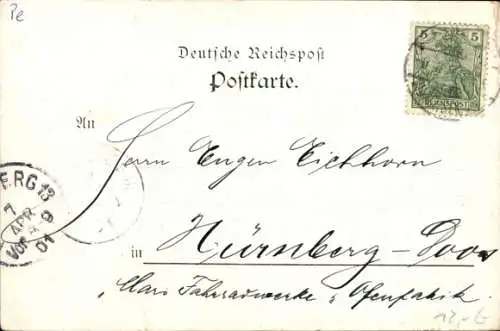 Pe
5 5
REICHSPOST
Deutsche Reichspost
Postkarte.
An
Herrn Eugen Eichhorn
ERG 13
7 APR 01
VOR
in Nürnberg-Doos
„Mars Fahrradwerke u. Ofenfabrik
12,-€